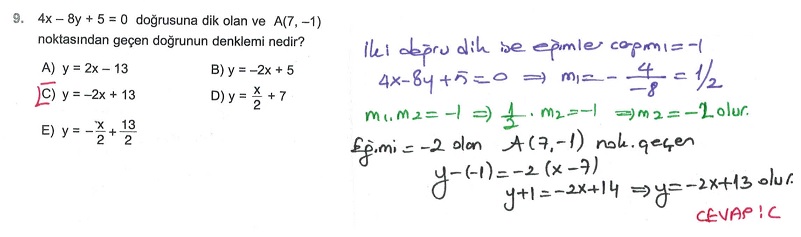 9. 4x – 8y + 5 = 0 doğrusuna dik olan ve A(7, –1)
noktasından geçen doğrunun denklemi nedir?
A) y = 2x – 13
B) y = –2x + 5
C) y = –2x + 13
D) y = x/2 + 7
E) y = –x/2 + 13/2
İki doğru dik ise eğimler çarpımı = -1
4x-8y+5=0 ⇒ m₁ = - 4/-8 = 1/2
m₁.m₂ = -1 ⇒ 1/2 . m₂ = -1 ⇒ m₂ = -2 olur.
Eğimi = -2 olan A(7,-1) nok. geçen
y-(-1) = -2(x-7)
y+1 = -2x+14 ⇒ y = -2x+13 olur.
CEVAP : C